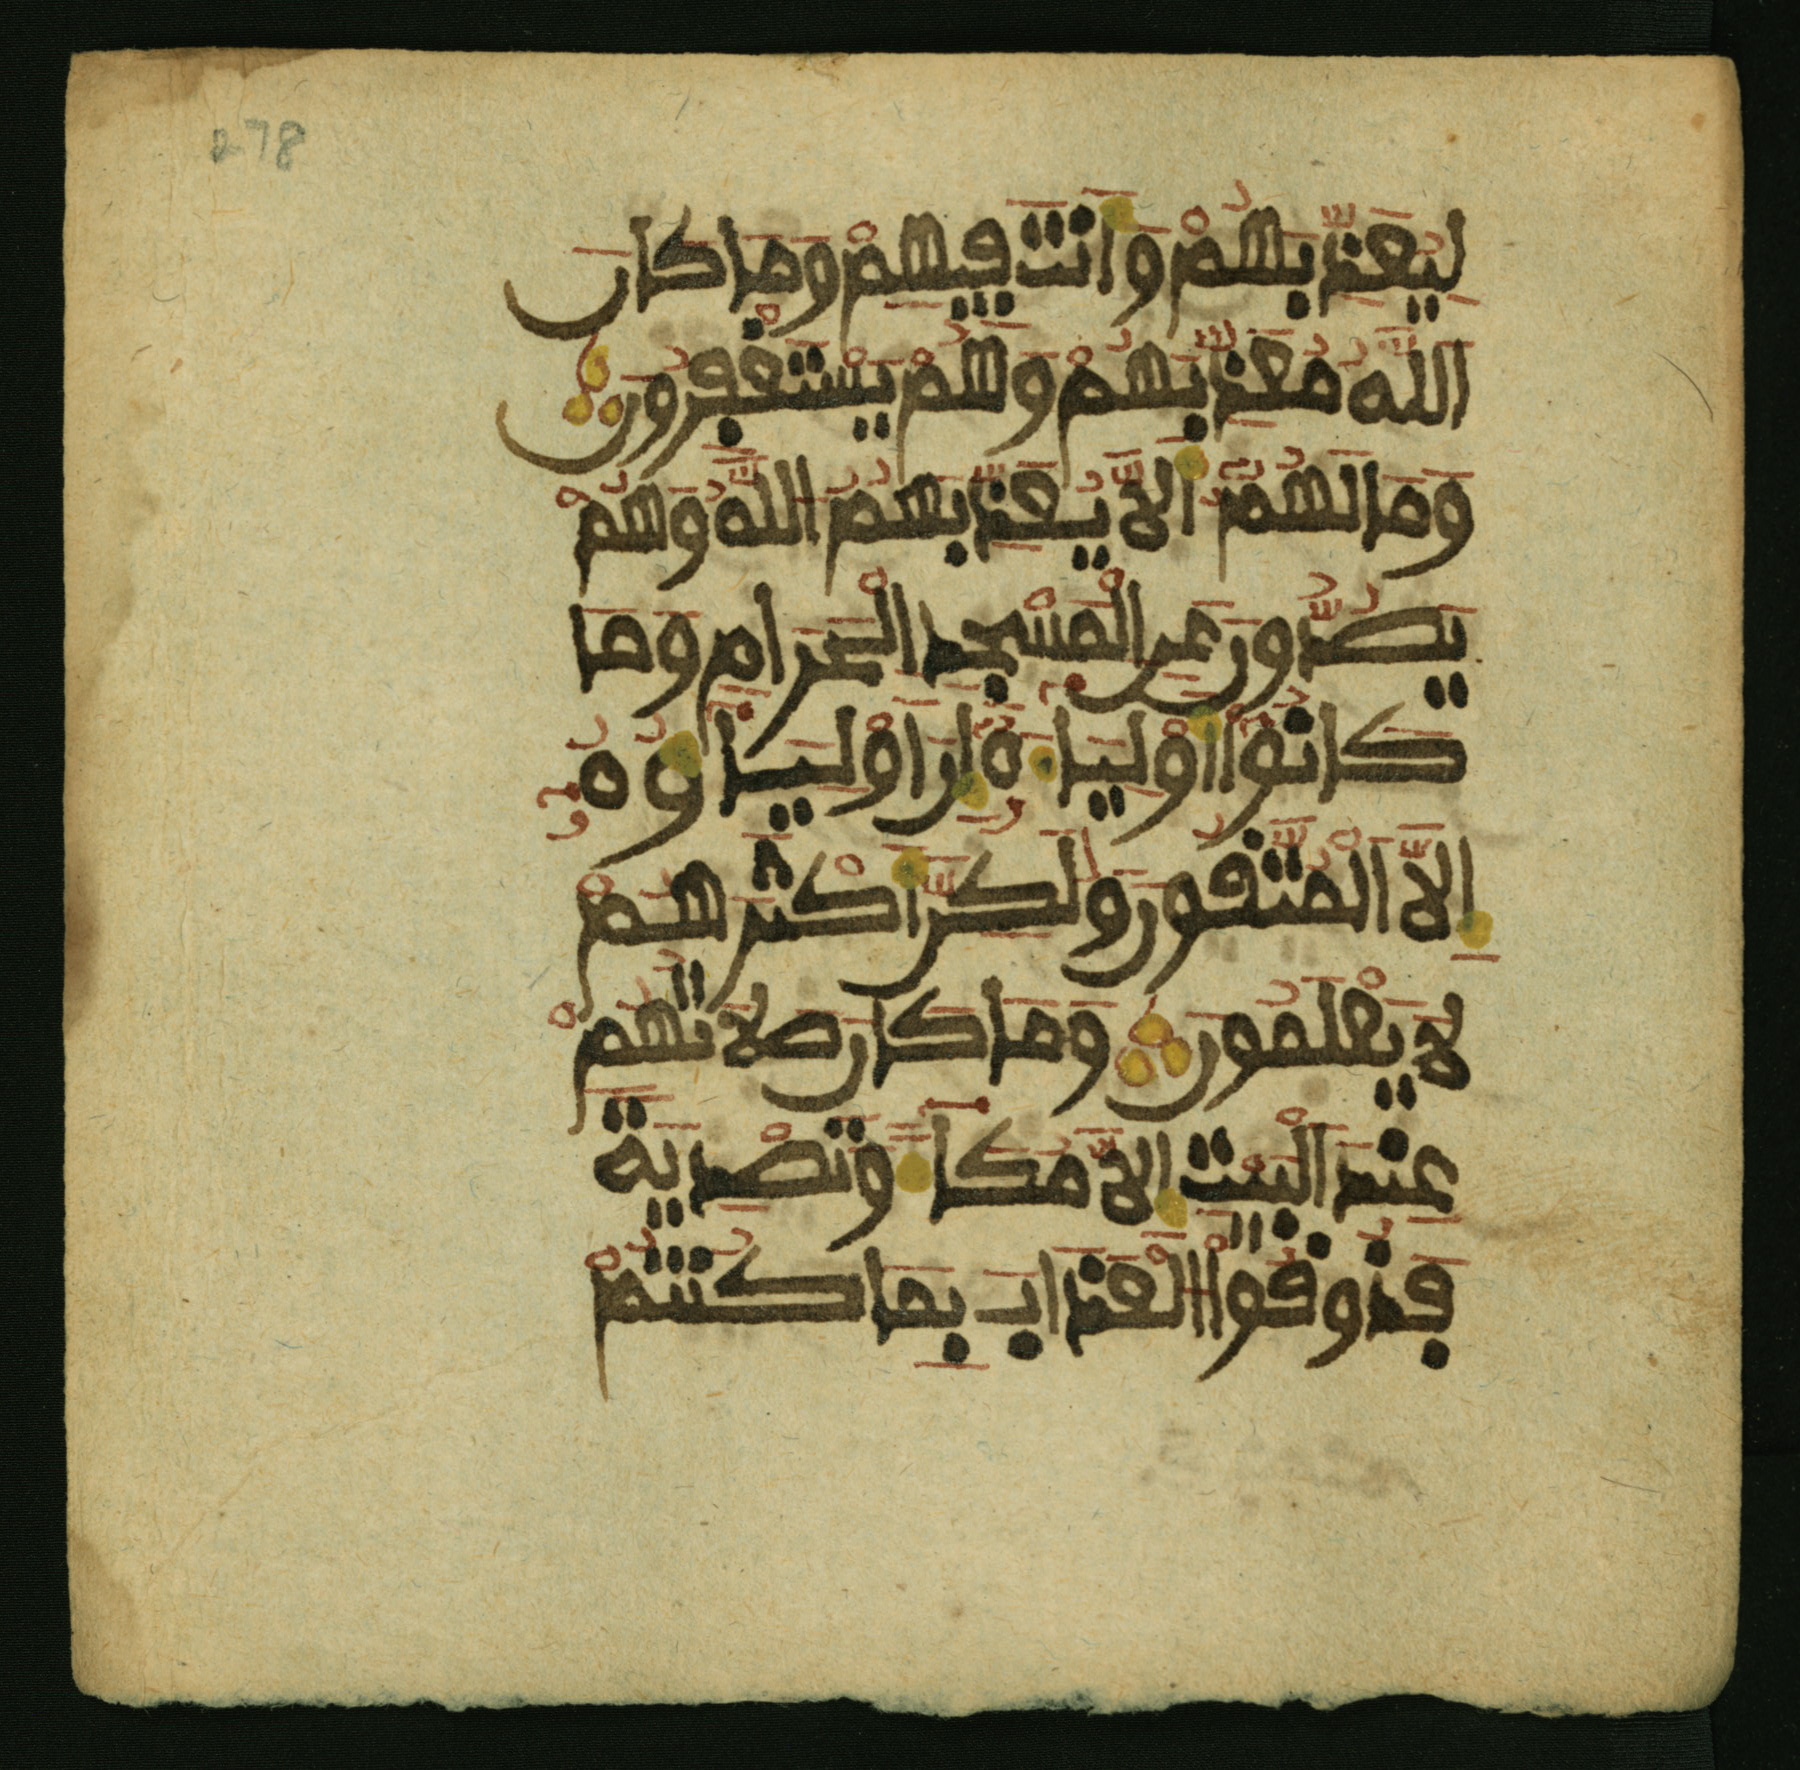 278
لِيُعَذِّبَهُمْ وَأَنتَ فِيهِمْ وَمَا كَانَ
اللَّهُ مُعَذِّبَهُمْ وَهُمْ يَسْتَغْفِرُونَ
وَمَا لَهُمُ أَلَّا يُعَذِّبَهُمُ اللَّهُ وَهُمْ
يَصُدُّونَ عَنِ الْمَسْجِدِ الْحَرَامِ وَمَا
كَانُوا أَوْلِيَاءَهُ إِنْ أَوْلِيَاؤُهُ
إِلَّا الْمُتَّقُونَ وَلَكِنَّ أَكْثَرَهُمْ
لَا يَعْلَمُونَ وَمَا كَانَ صَلَاتُهُمْ
عِندَ الْبَيْتِ إِلَّا مُكَاءً وَتَصْدِيَةً
فَذُوقُوا الْعَذَابَ بِمَا كُنتُمْ